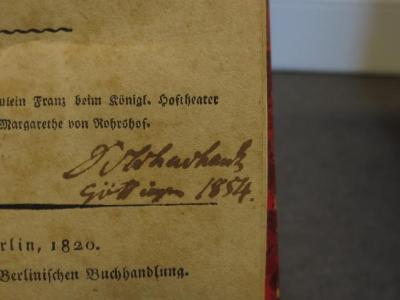 ulein Franz beim Königl. Hoftheater
Margarethe von Rohrshof.
Göttingen 1854.
rlin, 1820.
Berlinischen Buchhandlung.